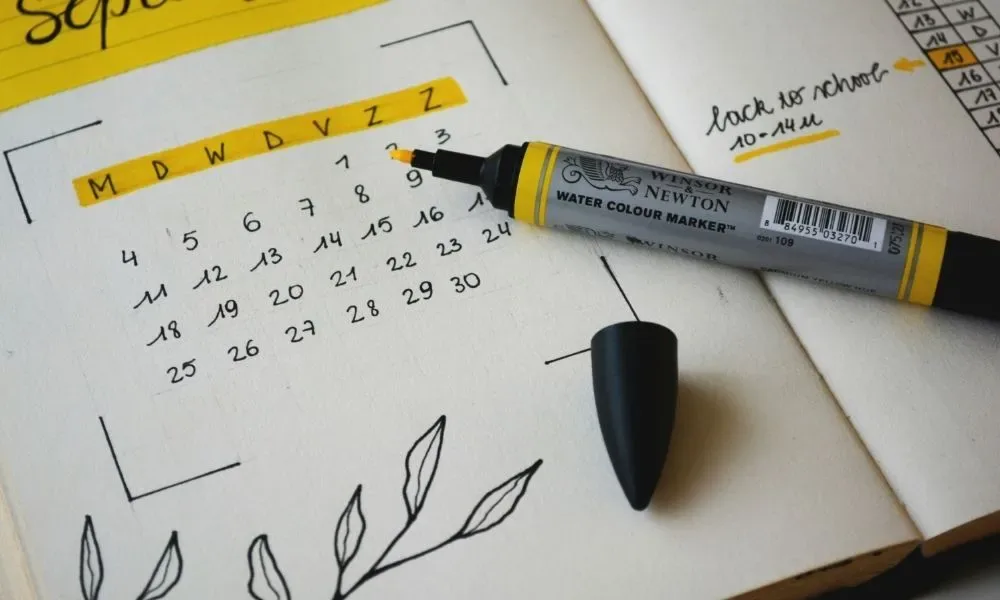 Sept
M D W D V Z Z
1 2 3
4 5 6 7 8 9
11 12 13 14 15 16
18 19 20 21 22 23 24
25 26 27 28 29 30
WINSOR
&
NEWTON
WATER COLOUR MARKER™
8 84955 03270 1
0201 109
WINSOR
back to school
10-14u
12
13 W
14 D
15 V
16
17